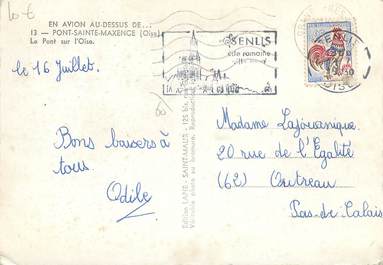 10 €
EN AVION AU-DESSUS DE...
13 — PONT-SAINTE-MAXENCE (Oise)
Le Pont sur l'Oise.
SENLIS
cité romaine
SENLIS
OISE
le 16 Juillet.
Bons baisers à
tous.
Odile
Edition LAPIE - SAINT-MAUR
Véritable photo au bromure.
Madame Lajouanique
20 rue de l'Égalité
(62) Outreau
Pas-de-Calais